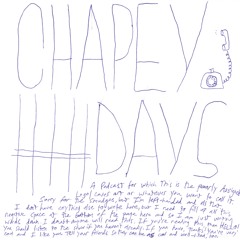 CHAPEY
DAYS
A Podcast for which This is the poorly designed
legal cover art or whatever you want to call it.
Sorry for the smudges, but I'm left-handed and all that.
I don't have anything else to write here, but I need to fill up all this
negative space at the bottom of the page here and so I am just writing
I doubt anyone will read this. If you're reading this, then HELLO!
You should listen to the show if you haven't already. If you have, thanks! You're very
cool and I like you. Tell your friends so they can be as cool and well-liked, too!